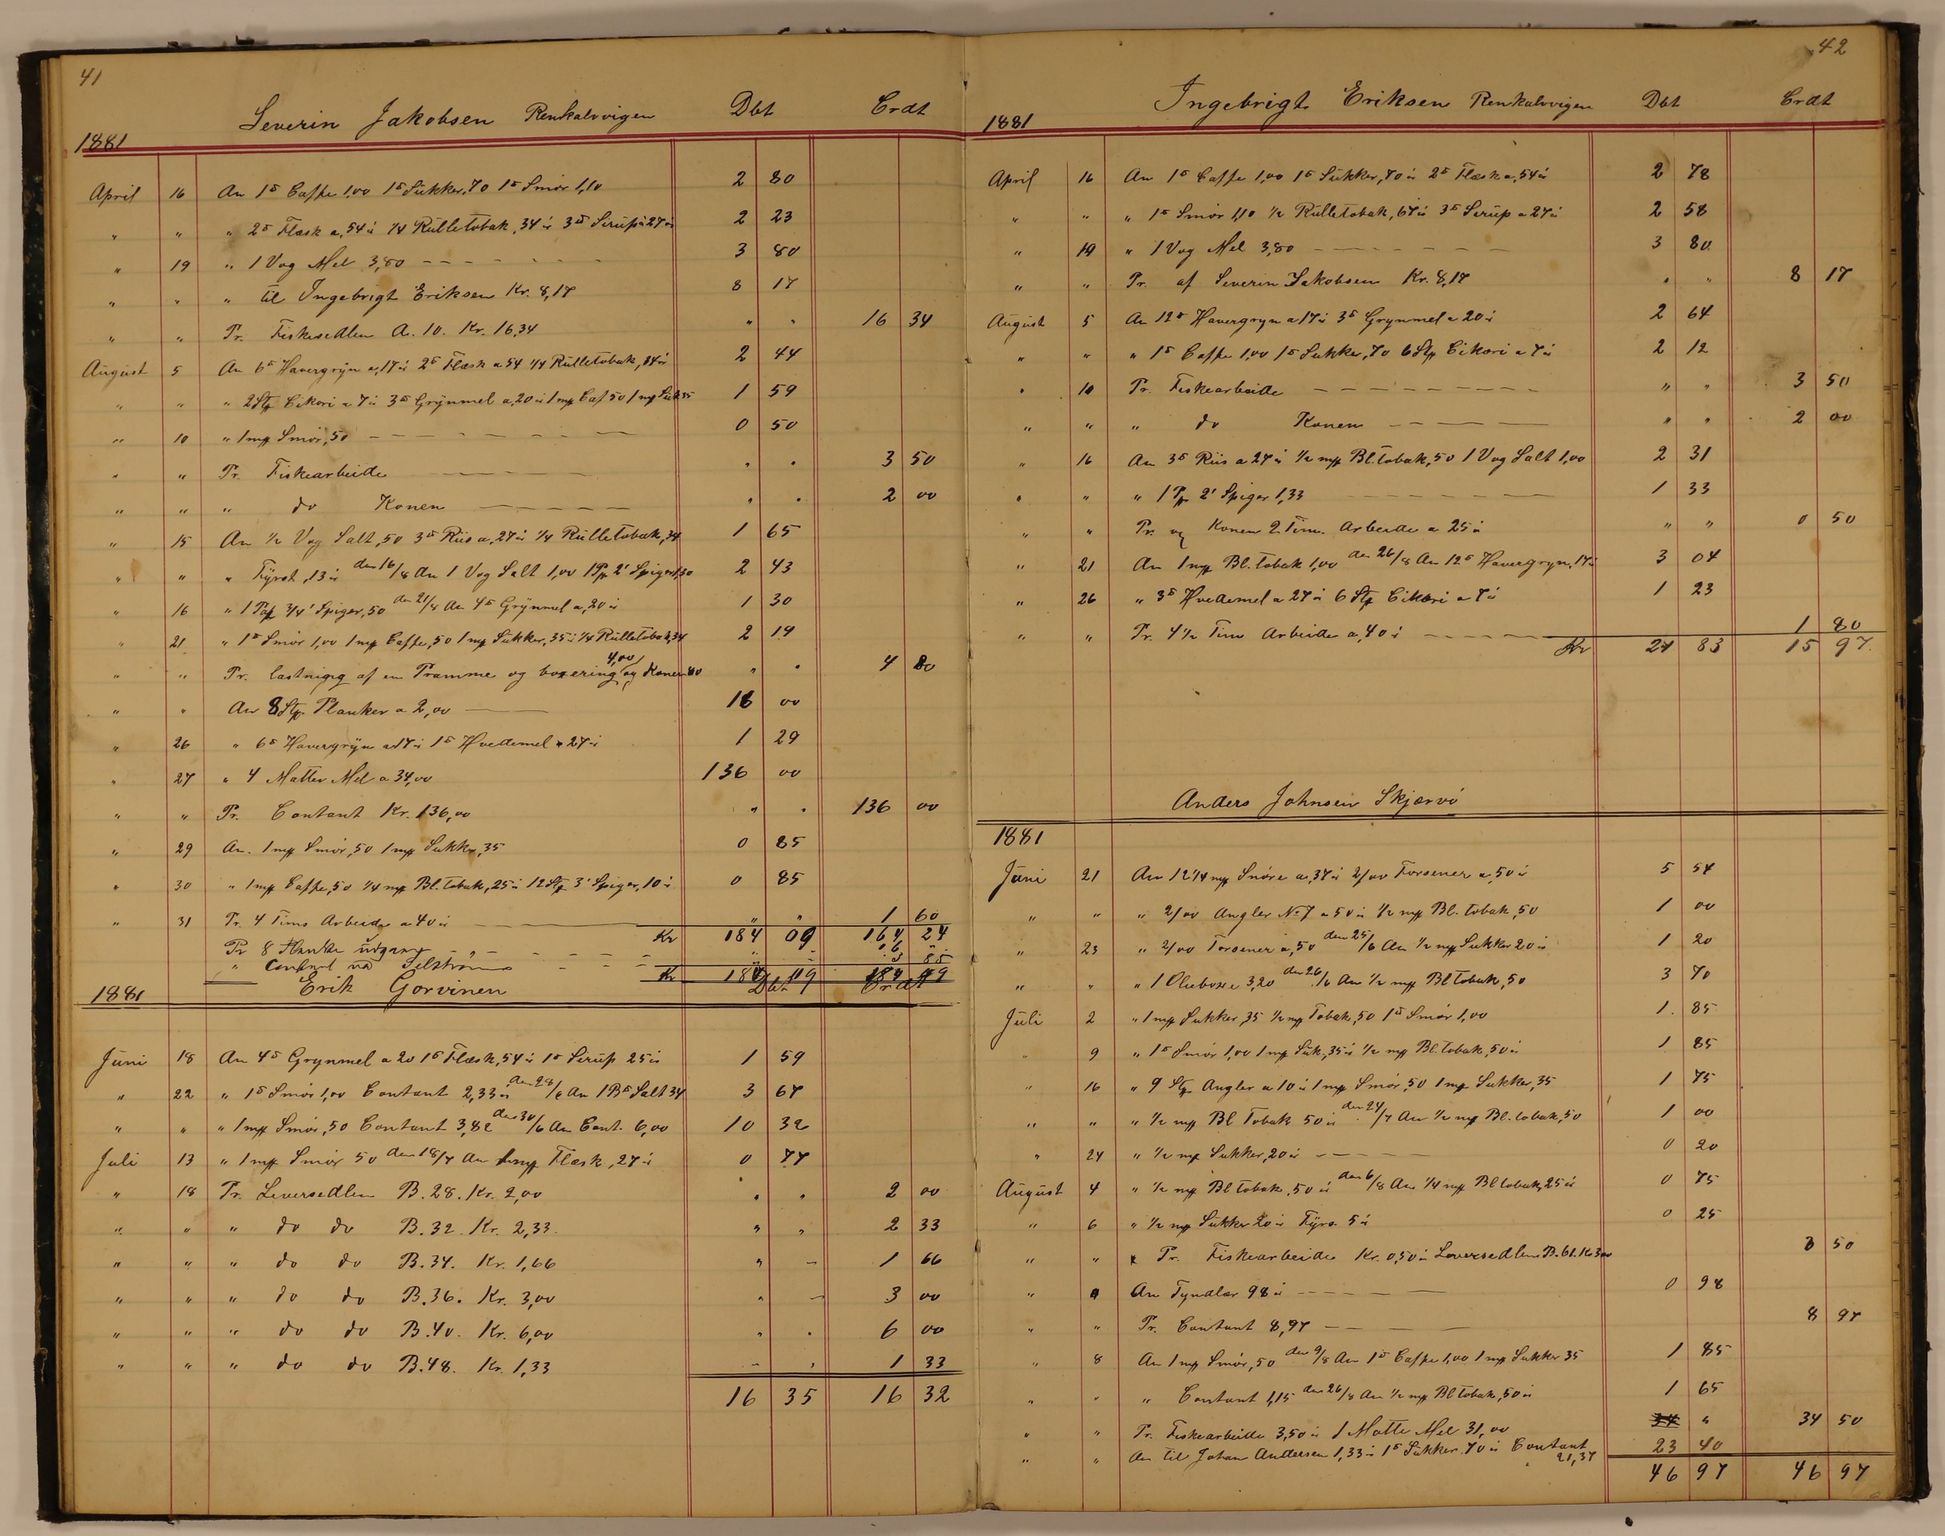 41
Severin Jakobsen Renkalvvigen Dbt Crdt
1881
April 16 An 1 ℔ Caffe 1,00 1 ℔ Sukker,70 1 ℔ Smør 1,10 2 80
" " " 2 ℔ Flæsk a,54 ø 1/4 Rulletobak,34 ø 3 ℔ Sirup a 27 ø 2 23
" 19 " 1 Vog Mel 3,80 3 80
" " " til Ingebrigt Eriksen Kr. 8,17 8 17
" " Pr. Fiskesedlen A. 10. Kr. 16,34 " " 16 34
August 5 An 6 ℔ Havergryn a,17 ø 2 ℔ Flæsk a 54 1/4 Rulletobak,34 ø 2 44
" " " 2 Stp Cikori a 7 ø 3 ℔ Grynmel a,20 ø 1 mp Caf 50 1 mp Suk 35 1 59
" 10 " 1 mp Smør,50 0 50
" " Pr. Fiskearbeide " " 3 50
" " " do Konen " " 2 00
" 15 An 1/2 Vog Salt,50 3 ℔ Riis a,27 ø 1/4 Rulletobak,34 1 65
" " " Fyrst,13 ø den 16/8 An 1 Vog Salt 1,00 1 Pp 2' Spiger 1,30 2 43
" 16 " 1 Pap 3/4' Spiger,50 den 21/8 An 4 ℔ Grynmel a,20 ø 1 30
" 21 " 1 ℔ Smør 1,00 1 mp Caffe,50 1 mp Sukker,35 ø 1/4 Rulletobak,34 2 19
" " Pr. lastnigg af en Pramme og boxering 4,00 og Konen 80 " " 4 80
" " An 8 Stp. Planker a 2,00 16 00
" 26 " 6 ℔ Havergryn a 17 ø 1 ℔ Hvedemel a 27 ø 1 29
" 27 " 4 Matter Mel a 34,00 136 00
" " Pr. Contant Kr. 136,00 " " 136 00
" 29 An. 1 mp Smør,50 1 mp Sukker,35 0 85
" 30 " 1 mp Caffe,50 1/4 mp Bl. tobak,25 ø 12 Stp 3' Spiger,10 ø 0 85
" 31 Pr. 4 Tims Arbeide a 40 ø " " 1 60
Kr 184 09 164 24
Pr 8 Planke udgang 16 "
" Contant 3 85
Kr 184 09 184 09
1881 Erik Gorvinen Dbt Crdt
Juni 18 An 4 ℔ Grynmel a 20 1 ℔ Flæsk,54 ø 1 ℔ Sirup 25 ø 1 59
" 22 " 1 ℔ Smør 1,00 Contant 2,33 ø den 28/6 An 1 B℔ Salt 34 3 67
" " " 1 mp Smør,50 Contant 3,82 den 30/6 An Cont. 6,00 10 32
Juli 13 " 1 mp Smør 50 den 18/7 An 1 mp Flæsk,27 ø 0 77
" 18 Pr. Leversedlen B. 28. Kr. 2,00 " " 2 00
" " " do do B. 32. Kr. 2,33 " " 2 33
" " " do do B. 34. Kr. 1,66 " " 1 66
" " " do do B. 36. Kr. 3,00 " " 3 00
" " " do do B. 40. Kr. 6,00 " " 6 00
" " " do do B. 48. Kr. 1,33 " " 1 33
16 35 16 32
42
Ingebrigt Eriksen Renkalvvigen Dbt Crdt
1881
April 16 An 1 ℔ Caffe 1,00 1 ℔ Sukker,70 ø 2 ℔ Flæsk a,54 ø 2 78
" " " 1 ℔ Smør 1,10 1/2 Rulletobak,67 ø 3 ℔ Sirup a 27 ø 2 58
" 19 " 1 Vog Mel 3,80 3 80
" " Pr. af Severin Jakobsen Kr. 8,17 " " 8 17
August 5 An 12 ℔ Havergryn a 17 ø 3 ℔ Grynmel a 20 ø 2 64
" " " 1 ℔ Caffe 1,00 1 ℔ Sukker,70 6 Stp Cikori a 7 ø 2 12
" 10 Pr. Fiskearbeide " " 3 50
" " " do Konen " " 2 00
" 16 An 3 ℔ Riis a 27 ø 1/2 mp Bl. tobak,50 1 Vog Salt 1,00 2 31
" " " 1 Pp 2' Spiger 1,33 1 33
" " Pr. og Konen 2 Tim. Arbeide a 25 ø " " 0 50
" 21 An 1 mp Bl. tobak 1,00 den 26/8 An 12 ℔ Havergryn,17 ø 3 04
" 26 " 3 ℔ Hvedemel a 27 ø 6 Stp Cikori a 7 ø 1 23
" " Pr. 4 1/2 Tim Arbeide a,40 ø 1 80
Kr 21 83 15 97
Anders Johnsen Skjærvø
1881
Juni 21 An 12 1/4 mp Snøre a,37 ø 2/00 Forsener a,50 ø 5 54
" " " 2/00 Angler No 7 a 50 ø 1/2 mp Bl. tobak,50 1 00
" 23 " 2/00 Forsener a,50 den 25/6 An 1/2 mp Sukker 20 ø 1 20
" " " 1 Oliebuxe 3,20 den 26/6 An 1/2 mp Bl tobak,50 3 70
Juli 2 " 1 mp Sukker 35 1/2 mp Tobak,50 1 ℔ Smør 1,00 1 85
" 9 " 1 ℔ Smør 1,00 1 mp Suk,35 ø 1/2 mp Bl. tobak,50 ø 1 85
" 16 " 9 Stp Angler a 10 ø 1 mp Smør,50 1 mp Sukker,35 1 75
" " " 1/2 mp Bl Tobak 50 ø den 24/7 An 1/2 mp Bl. tobak,50 1 00
" 24 " 1/2 mp Sukker,20 ø 0 20
August 4 " 1/2 mp Bl tobak,50 ø den 6/8 An 1/4 mp Bl tobak,25 ø 0 75
" 6 " 1/2 mp Sukker 20 ø Fyrs. 5 ø 0 25
" " Pr. Fiskearbeide Kr. 0,50 ø Leversedlen B. 61. Kr 3,00 3 50
" " An Tyndlar 98 ø 0 98
" " Pr. Contant 8,97 8 97
" 8 An 1 mp Smør,50 den 9/8 An 1 ℔ Caffe 1,00 1 mp Sukker 35 1 85
" " " Contant 1,15 den 26/8 An 1/2 mp Bl tobak,50 ø 1 65
" " Pr. Fiskearbeide 3,50 ø 1 Matte Mel 31,00 34 " 34 50
" " An til Johan Andersen 1,33 ø 1 ℔ Sukker 70 ø Contant 21,37 23 40
46 97 46 97